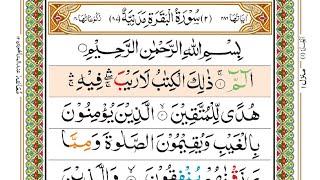 اٰيَاتُهَا ٢٨٦ (٢) سُوْرَةُ الْبَقَرَةِ مَدَنِيَّةٌ (٨٧) رُكُوْعَاتُهَا ٤٠
بِسْمِ اللّٰهِ الرَّحْمٰنِ الرَّحِيْمِ
الٓمّٓ ۚ ذٰلِكَ الْكِتٰبُ لَا رَيْبَ ۛ فِيْهِ ۛ
هُدًى لِّلْمُتَّقِيْنَ ۙ الَّذِيْنَ يُؤْمِنُوْنَ
بِالْغَيْبِ وَيُقِيْمُوْنَ الصَّلٰوةَ وَمِمَّا
رَزَقْنٰهُمْ يُنْفِقُوْنَ ۙ وَالَّذِيْنَ